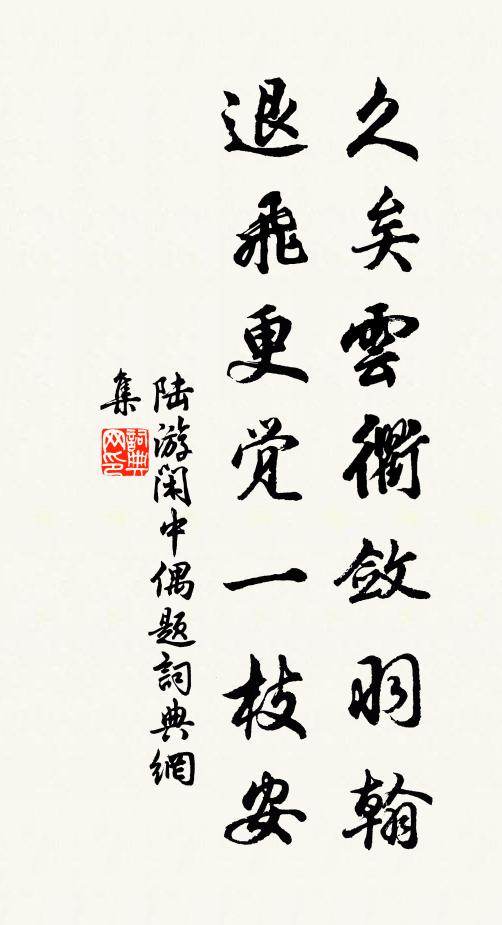 久矣雲衢斂羽翰
退飛更觉一枝安
陆游闲中偶题詞典網
集
詞典
网印